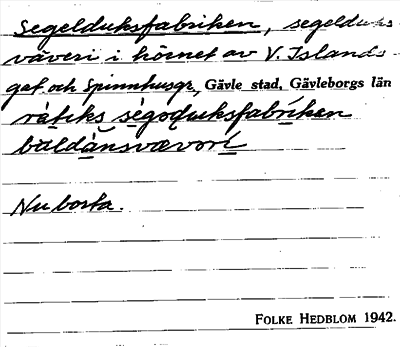 Segelduksfabriken, segelduks-
väveri i hörnet av V. Islands-
gat och Spinnhusgr, Gävle stad, Gävleborgs län
segoduksfabriken
Nu borta.
FOLKE HEDBLOM 1942.